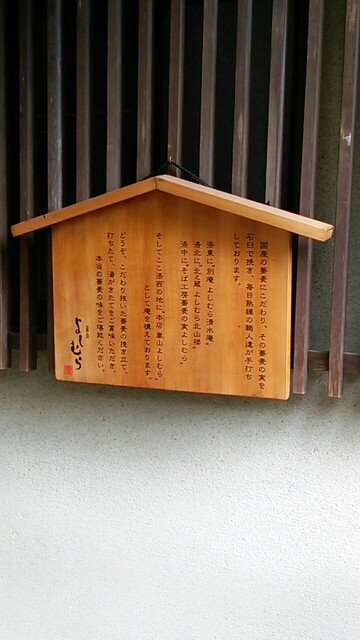 国産の蕎麦にこだわり、その蕎麦の実を
石臼で挽き、毎日熟練の職人達が手打ち
しております。
洛東に“別庵 よしむら清水庵”
洛北に“北之蔵 よしむら北山楼”
洛中に“そば工房蕎麦の実よしむら”
そしてここ洛西の地に“本店 嵐山よしむら”
として庵を構えております。
どうぞ、こだわり抜いた蕎麦の挽き立て、
打ちたて、湯がきたてをご賞味いただき、
本当の蕎麦の味をご堪能ください。
嵐山
よしむら